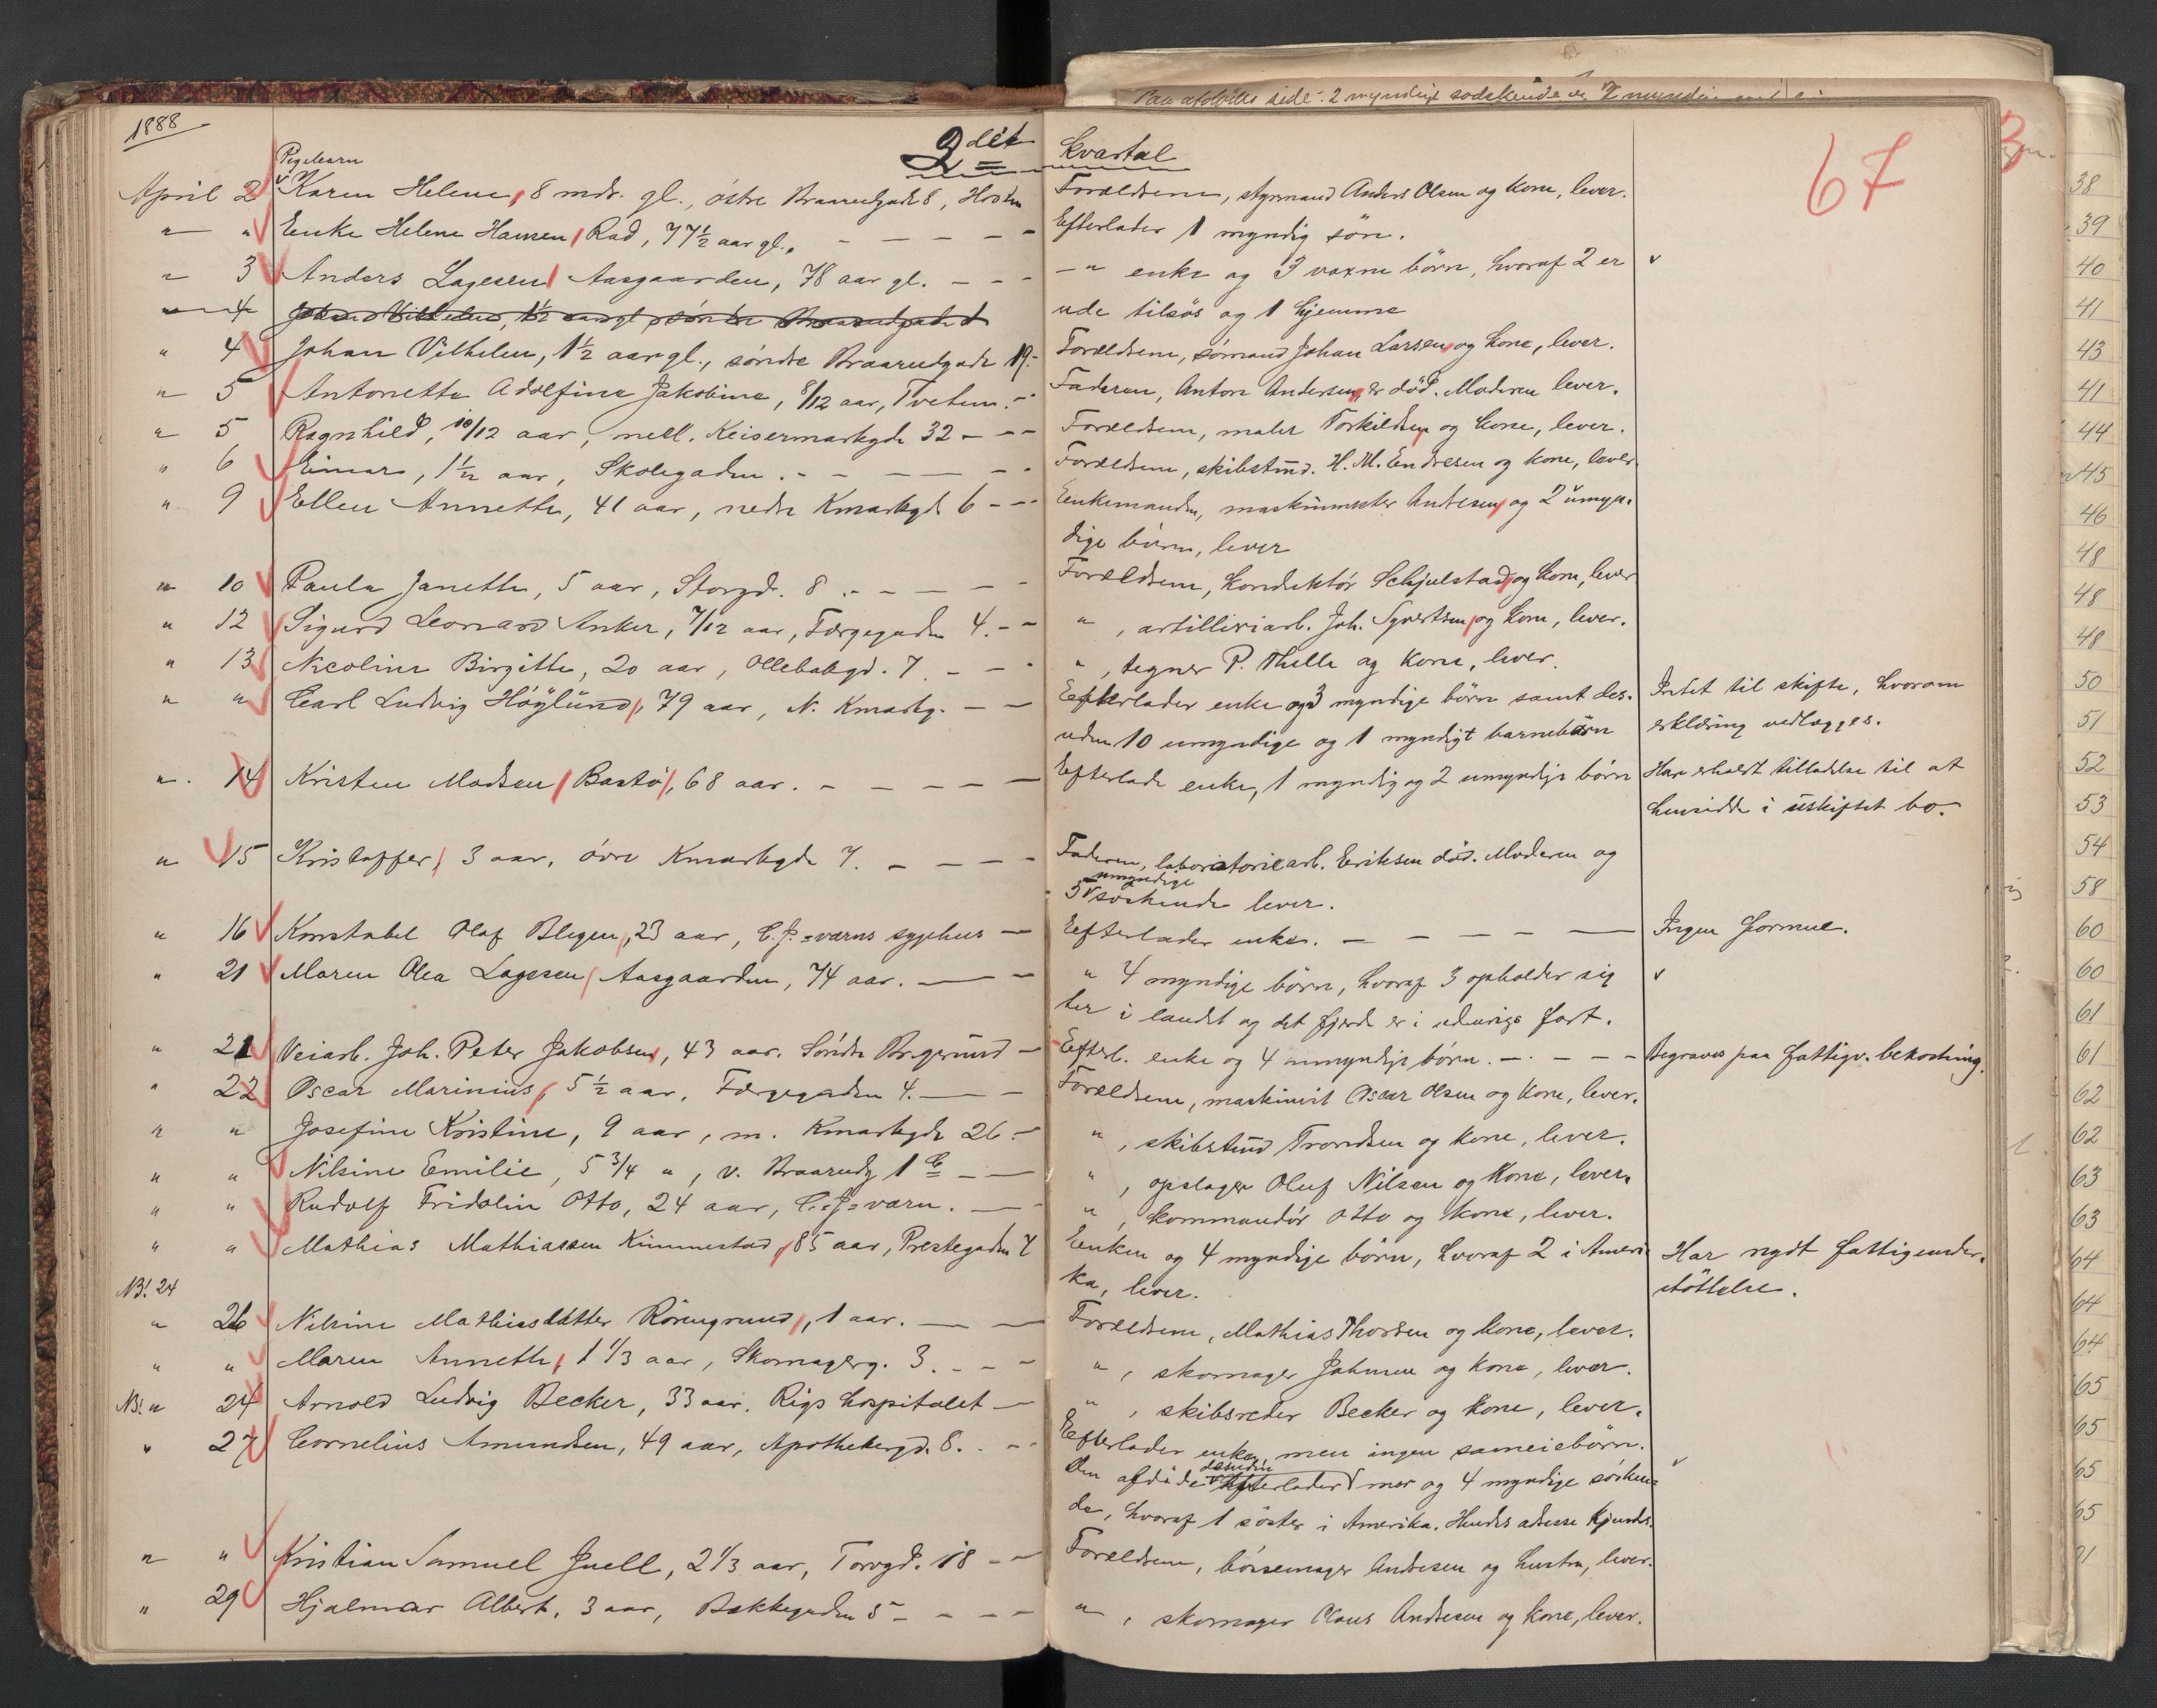 1888
2det Kvartal
67
Pigebarn
April 2 Karen Helene, 8 mdr. gl., østre Braarudgade 8, Horten Forældrene, styrmand Anders Olsen og kone, lever.
" " Enke Helene Hansen, Rød, 77½ aar gl., - - - - Efterlader 1 myndig søn.
" 3 Anders Lagesen, Aasgaarden, 78 aar gl. - - - -"- enke og 3 voxne børn, hvoraf 2 er
" 4 Johan Vilhelm, 1½ aar gl., søndre Braarudgade ude tilsøs og 1 hjemme
" 4 Johan Vilhelm, 1½ aar gl., søndre Braarudgade 19.- Forældrene, sømand Johan Larsen og kone, lever.
" 5 Antonette Adolfine Jakobine, 8/12 aar, Tveten.- Faderen, Anton Andersen, er død. Moderen lever.
" 5 Ragnhild, 10/12 aar, mell. Keisermarkgde 32 - - - Forældrene, maler Torkildsen og kone, lever.
" 6 Einar, 1½ aar, Skolegaden. - - - - - Forældrene, skibstmd. H. M. Endresen og kone, lever.
" 9 Ellen Annette, 41 aar, nedre Kmarkgd 6 - - - Enkemanden, maskinmester Andresen, og 2 umyn-
dige børn, lever
" 10 Paula Janette, 5 aar, Storgd. 8. - - - - - Forældrene, konduktør Schjelstad, og kone, lever
" 12 Sigurd Leonard Anker, 7/12 aar, Færgegaden 4. - - " , artilleriarb. Joh. Syvertsen, og kone, lever.
" 13 Nicoline Birgitte, 20 aar, Ollebakgd. 7. - - - " , tegner P. Thelle og kone, lever.
" " Carl Ludvig Höylund, 79 aar, N. Kmarkg. - - Efterlader enke og 3 myndige børn samt des- Intet til skifte, hvorom
uden 10 umyndige og 1 myndigt barnebørn erklæring vedlægges.
" 14 Kristen Madsen, Bastø, 68 aar. - - - - - Efterlader enke, 1 myndig og 2 umyndige børn Har erholdt tilladelse til at
hensidde i uskiftet bo.
" 15 Kristoffer, 3 aar, øvre Kmarkgde 7. - - - - Faderen, laboratoriearb. Eriksen død. Moderen og
umyndige
5 søskende lever.
" 16 Konstabel Olaf Blegen, 23 aar, C. J.=værns sygehus - Efterlader enke. - - - - - Ingen formue.
" 21 Maren Olea Lagesen, Aasgaarden, 74 aar. - - " 4 myndige børn, hvoraf 3 opholder sig
her i landet og det fjerde er i udenrigs fart.
" 21 Veiarb. Joh. Peter Jakobsen, 43 aar. Søndre - Efterl. enke og 4 umyndige børn. - - - - Begraves paa fattigv. bekostning.
" 22 Oscar Marinius, 5½ aar, Færgegaden 4. - - Forældrene, maskinist Oscar Olsen og kone, lever.
" " Josefine Kristine, 9 aar, m. Kmarkgde 26.- " , skibstmd Trondsen og kone, lever.
" " Nilsine Emilie, 5¾ ", v. Braarudg 1 C - - " , opslager Oluf Nilsen og kone, lever.
" " Rudolf Fridolin Otto, 24 aar, C.=J.=værn. - " , kommandør Otto og kone, lever.
" " Mathias Mathiassen Kimmestad, 85 aar, Prestegaden 7 Enken og 4 myndige børn, hvoraf 2 i Ameri- Har nydt fattigunder-
NB! 24 ka, lever. støttelse.
" 26 Nilsine Mathiasdatter Rørengrund, 1 aar. - - Forældrene, Mathias Thorsen og kone, lever.
" " Maren Annette, 1 1/3 aar, Skomagerg. 3. - - - " , skomager Johnsen og kone, lever.
NB! " 24 Arnold Ludvig Becker, 33 aar. Rigshospitalet - " , skibsreder Becker og kone, lever.
" 27 Cornelius Amundsen, 49 aar, Apothekergd. 8. - - Efterlader enke, men ingen sameiebørn.
desuden
Den afdøde efterlader mor og 4 myndige søsken-
de, hvoraf 1 søster i Amerika. Hendes adresse kjendes.
" " Kristian Samuel Juell, 2 1/3 aar, Torvgd. 18 - - Forældrene, børsemager Andresen og hustru, lever.
" 29 Hjalmar Albert, 3 aar, Bakkegaden 5 - - - - " , skomager Claus Andresen og kone, lever.
38
39
40
41
43
41
44
45
46
48
48
48
50
51
52
53
54
58
60
60
61
61
62
62
63
63
64
64
64
65
65
65
65